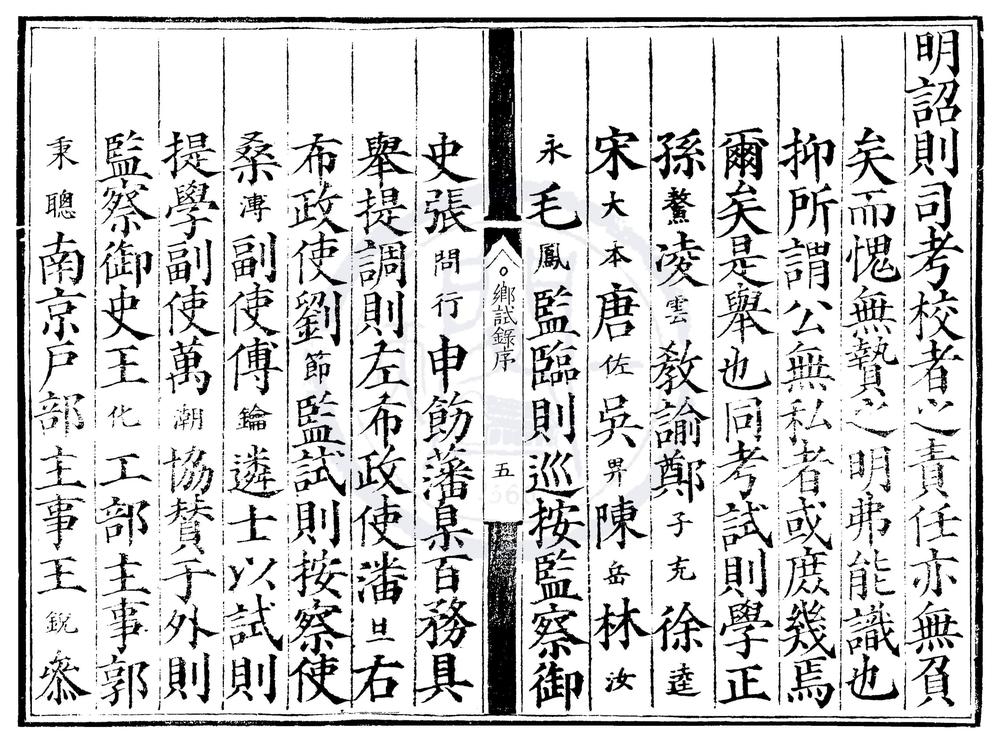 明詔則司考校者之責任亦無負
矣而愧無贄之明弗能識也
抑所謂公無私者或庶幾焉
爾矣是舉也同考試則學正
孫鰲凌雲教諭鄭子充徐逵
宋大本唐佐吳畀陳岳林汝
永毛鳳監臨則巡按監察御
鄉試錄序
五
史張問行申飭藩臬百務具
舉提調則左布政使潘旦右
布政使劉節監試則按察使
桑溥副使傅鑰遴士以試則
提學副使萬潮協贊于外則
監察御史王化工部主事郭
秉聰南京戶部主事王銳叅